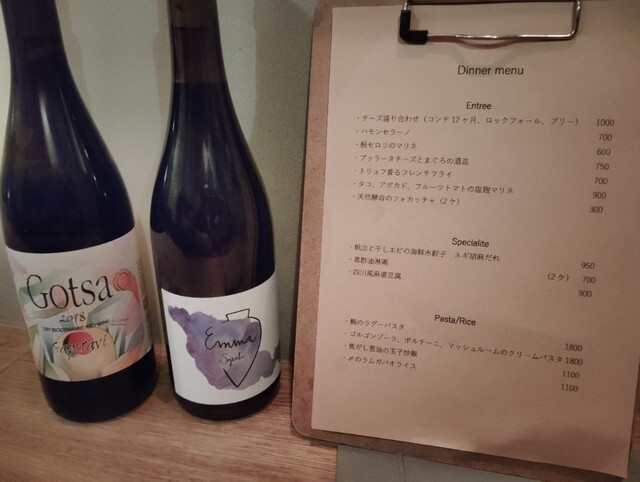 Gotsa
2018
DRY BIODYNAMIC RED WINE
Saperavi
Emma
Syrah
Dinner menu
Entree
・チーズ盛り合わせ（コンテ12ヶ月、ロックフォール、ブリー） 1000
・ハモンセラーノ 700
・根セロリのマリネ 600
・ブッラータチーズとまぐろの酒盗 750
・トリュフ香るフレンチフライ 700
・タコ、アボカド、フルーツトマトの塩麹マリネ 900
・天然酵母のフォカッチャ（2ケ） 300
Specialite
・帆立と干しエビの海鮮水餃子 ネギ胡麻だれ 950
・黒酢油淋鶏 （2ケ） 700
・四川風麻婆豆腐 900
Pasta/Rice
・鴨のラグーパスタ 1800
・ゴルゴンゾーラ、ポルチーニ、マッシュルームのクリームパスタ 1800
・焦がし葱油の玉子炒飯 1100
・〆のラムガパオライス 1100